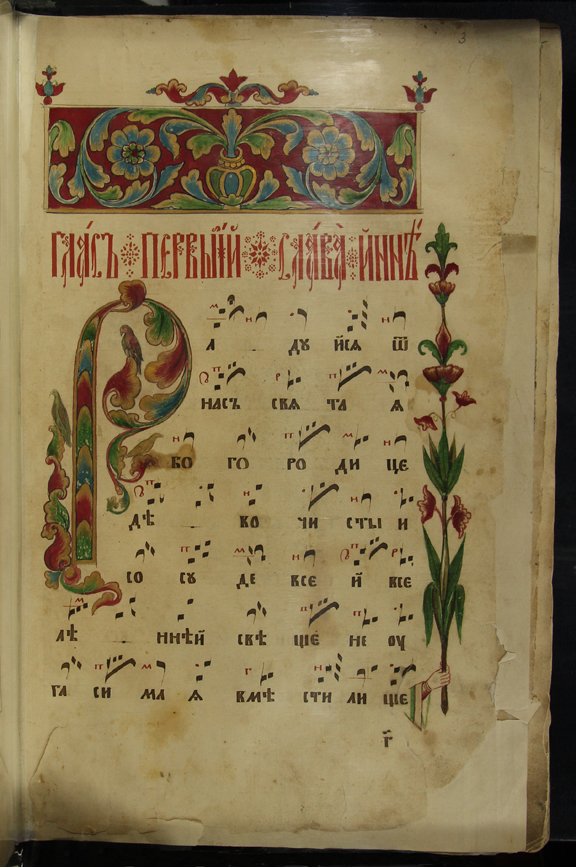 3
гла́съ первы́й сла́ва и҆ны́нѣ
Р
а ду йсѧ ѿ
насъ свѧ та ꙗ
бо го ро ди це
дѣ во чи сты и
со су де все й все
лѣ ннѣй свѣ ще не оу
га си ма ꙗ вмѣ сти ли ще
г҃